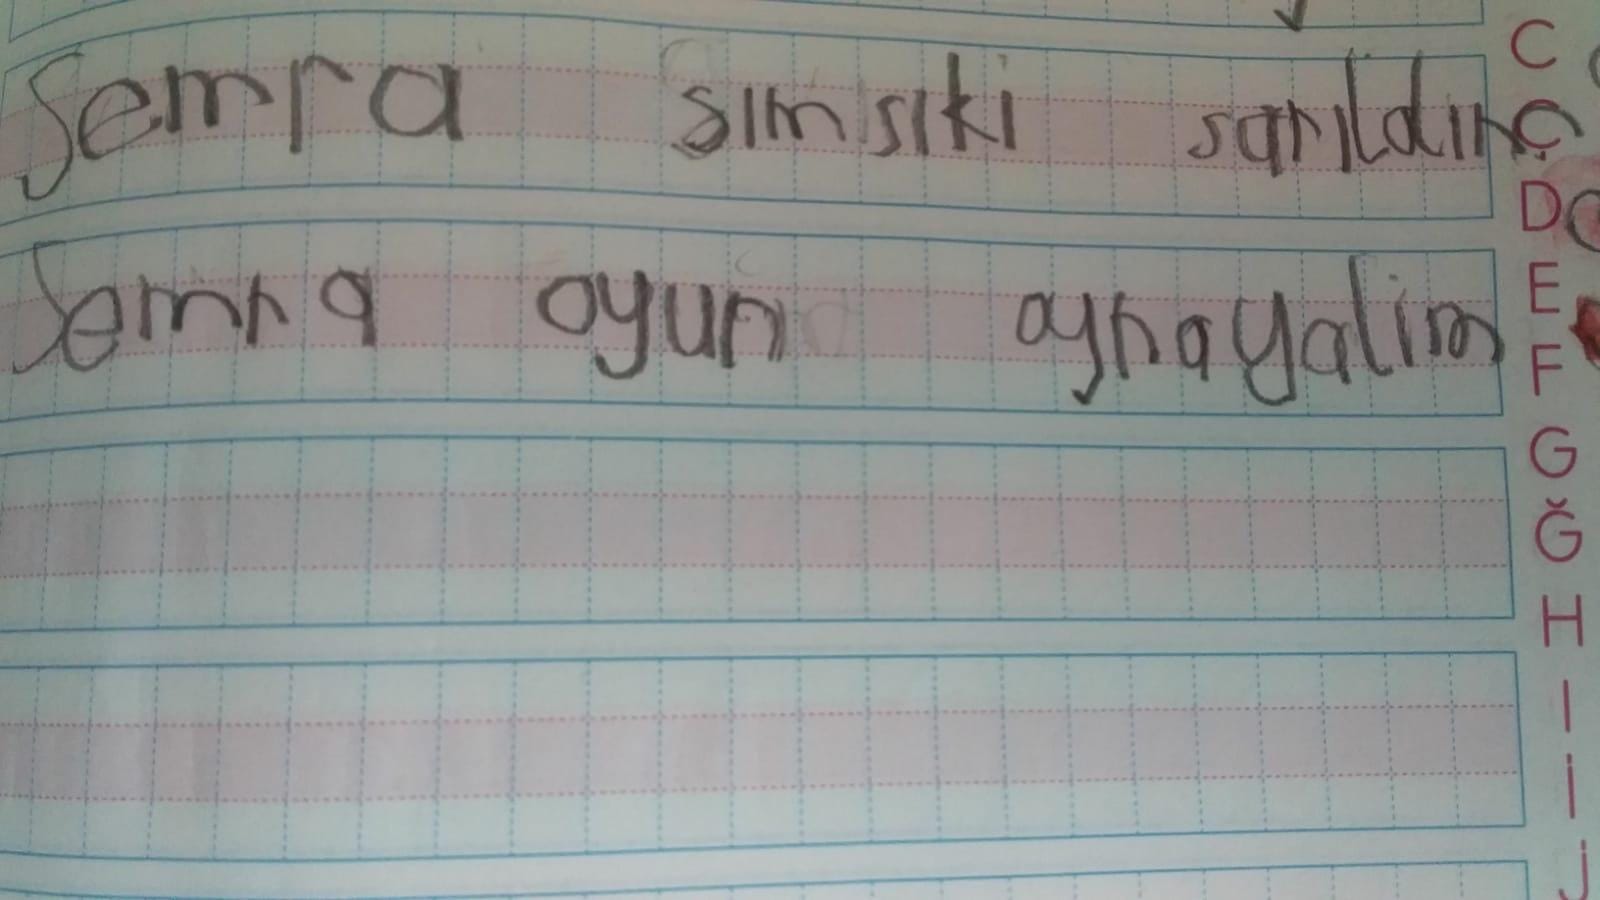 Semra sımsıki sarıldın
Semra oyun oynayalim
C
Ç
D
E
F
G
Ğ
H
I
İ
J